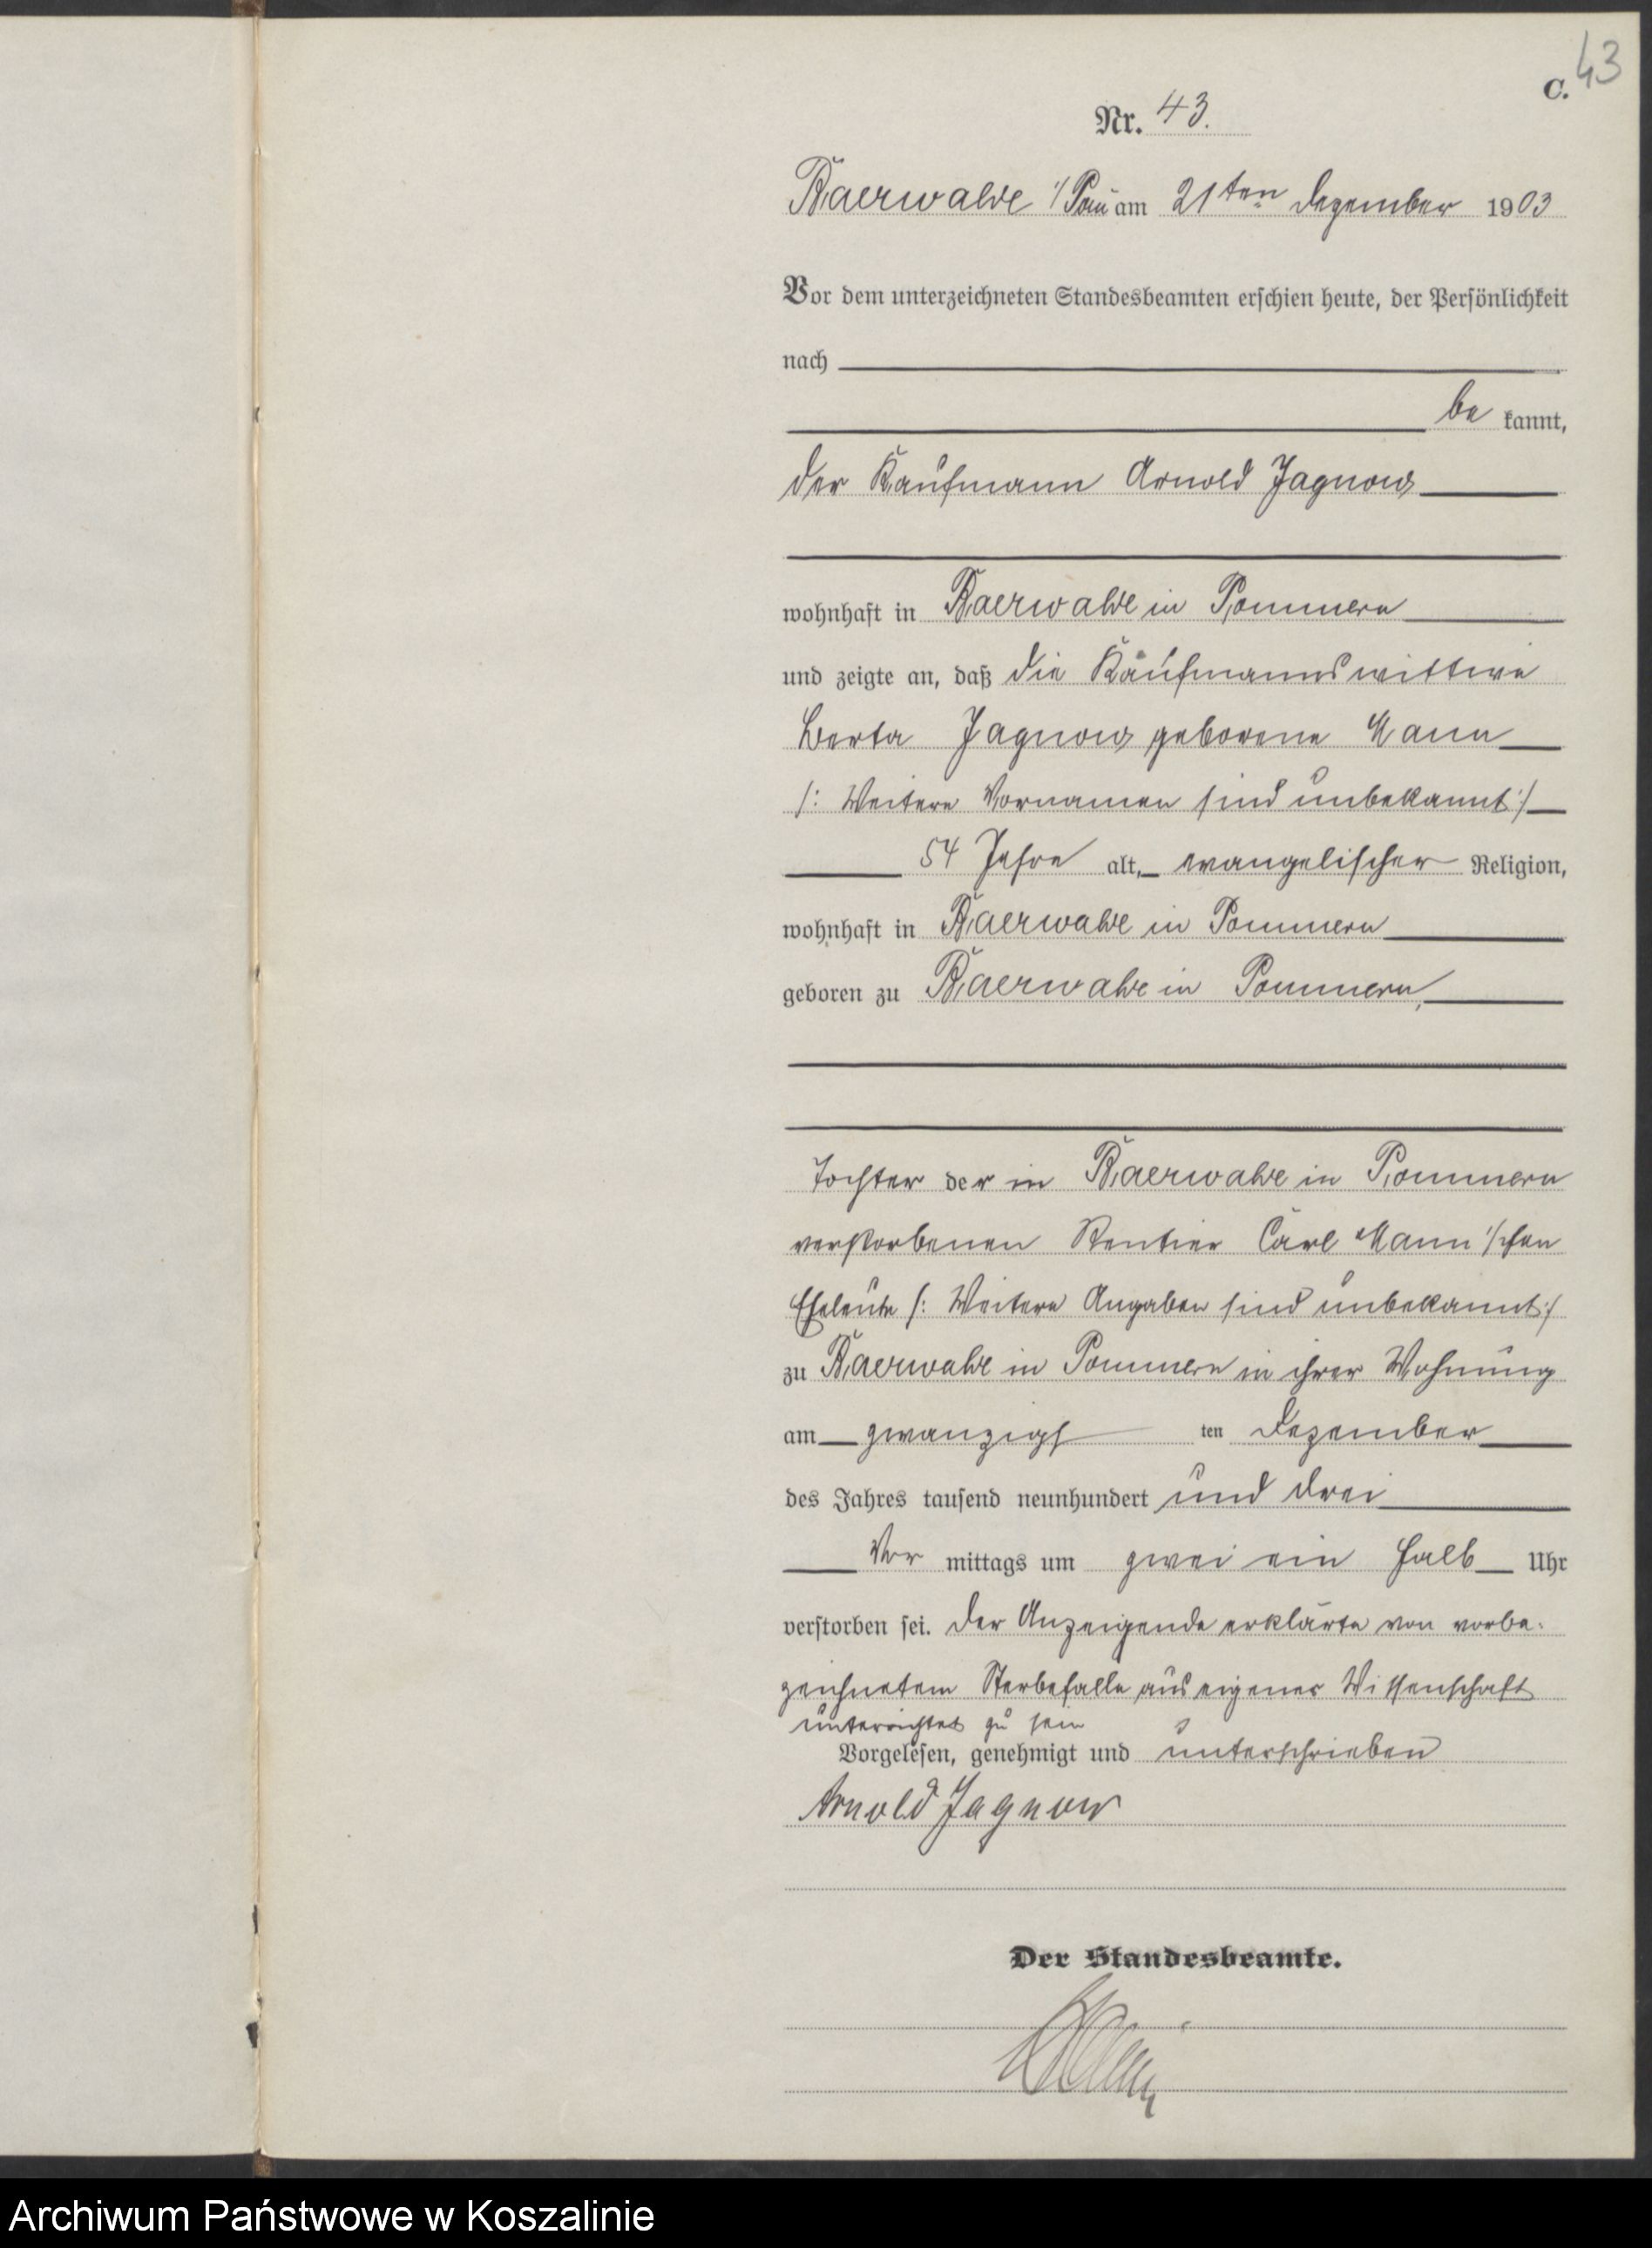 43
C.
Nr. 43.
Baerwalde i/Pom am 21ten Dezember 1903
Vor dem unterzeichneten Standesbeamten erschien heute, der Persönlichkeit
nach
be kannt,
der Kaufmann Arnold Jagnow
wohnhaft in Baerwalde in Pommern
und zeigte an, daß die Kaufmannswittwe
Berta Jagnow geborene Mann
/: Weitere Vornamen sind unbekannt :/
54 Jahre alt, evangelischer Religion,
wohnhaft in Baerwalde in Pommern
geboren zu Baerwalde in Pommern,
Tochter der in Baerwalde in Pommern
verstorbenen Rentier Carl Mann'schen
Eheleute /: Weitere Angaben sind unbekannt :/
zu Baerwalde in Pommern in ihrer Wohnung
am zwanzigsten Dezember
des Jahres tausend neunhundert und drei
Vor mittags um zwei ein halb Uhr
verstorben sei. Der Anzeigende erklärte von vorbe-
zeichnetem Sterbefalle aus eigener Wissenschaft
unterrichtet zu sein
Vorgelesen, genehmigt und unterschrieben
Arnold Jagnow
Der Standesbeamte.
Archiwum Państwowe w Koszalinie